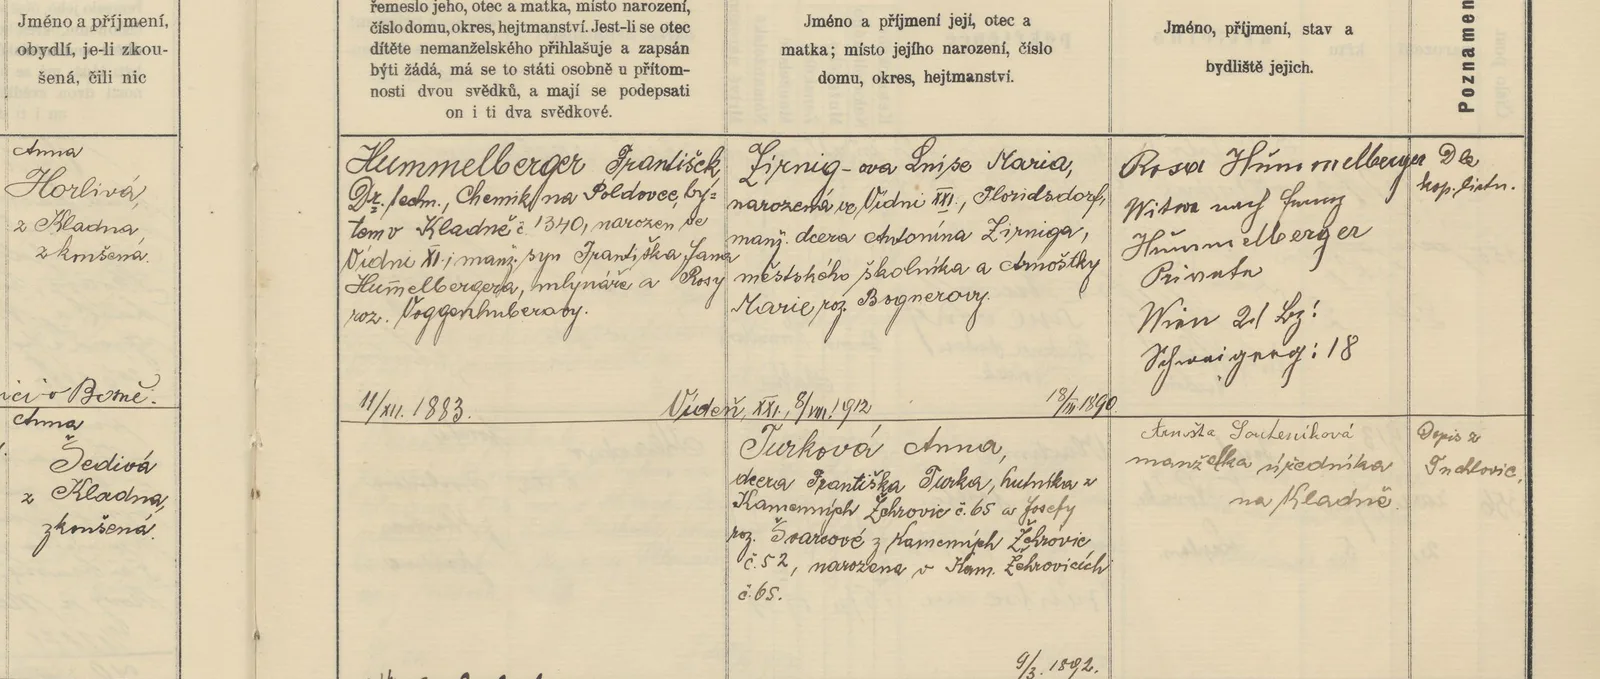 Jméno a příjmení,
obydlí, je-li zkou-
šená, čili nic
řemeslo jeho, otec a matka, místo narození,
číslo domu, okres, hejtmanství. Jest-li se otec
dítěte nemanželského přihlašuje a zapsán
býti žádá, má se to státi osobně u přítom-
nosti dvou svědků, a mají se podepsati
on i ti dva svědkové.
Jméno a příjmení její, otec a
matka; místo jejího narození, číslo
domu, okres, hejtmanství.
Jméno, příjmení, stav a
bydliště jejich.
Poznamen
Anna
Horlivá,
z Kladna,
zkoušená.
Hummelberger František,
Dr. techn., Chemik na Poldovce, by-
tem v Kladně č 1340, narozen ve
Vídni XI., manž. syn Františka Jana
Hummelbergera, mlynáře a Rosy
roz. Voggenhuberovy.
11/XII. 1883.
Zirnig-ova Luise Maria,
narozená ve Vídni XXI., Floridsdorf,
manž. dcera Antonína Zirniga,
městského školníka a Arnoštky
Marie roz. Bognerovy.
Vídeň, XXI., 8/VIII. 1912
18/III 1890.
Rosa Hummelberger
Witwe nach Franz
Hummelberger
Private
Wien 21 Bz:
18
Dle
kop. listu.
o Borně.
Anna
Šedivá
z Kladna,
zkoušená.
Turková Anna,
dcera Františka Turka, hutníka z
Kamenných Žehrovic č. 65 a Josefy
roz. Švarcové z Kamenných Žehrovic
č. 52, narozena v Kam. Žehrovicích
č. 65.
9/3. 1892.
Arnošta
manželka úředníka
na Kladně.
Dopis z
Tuchlovic.